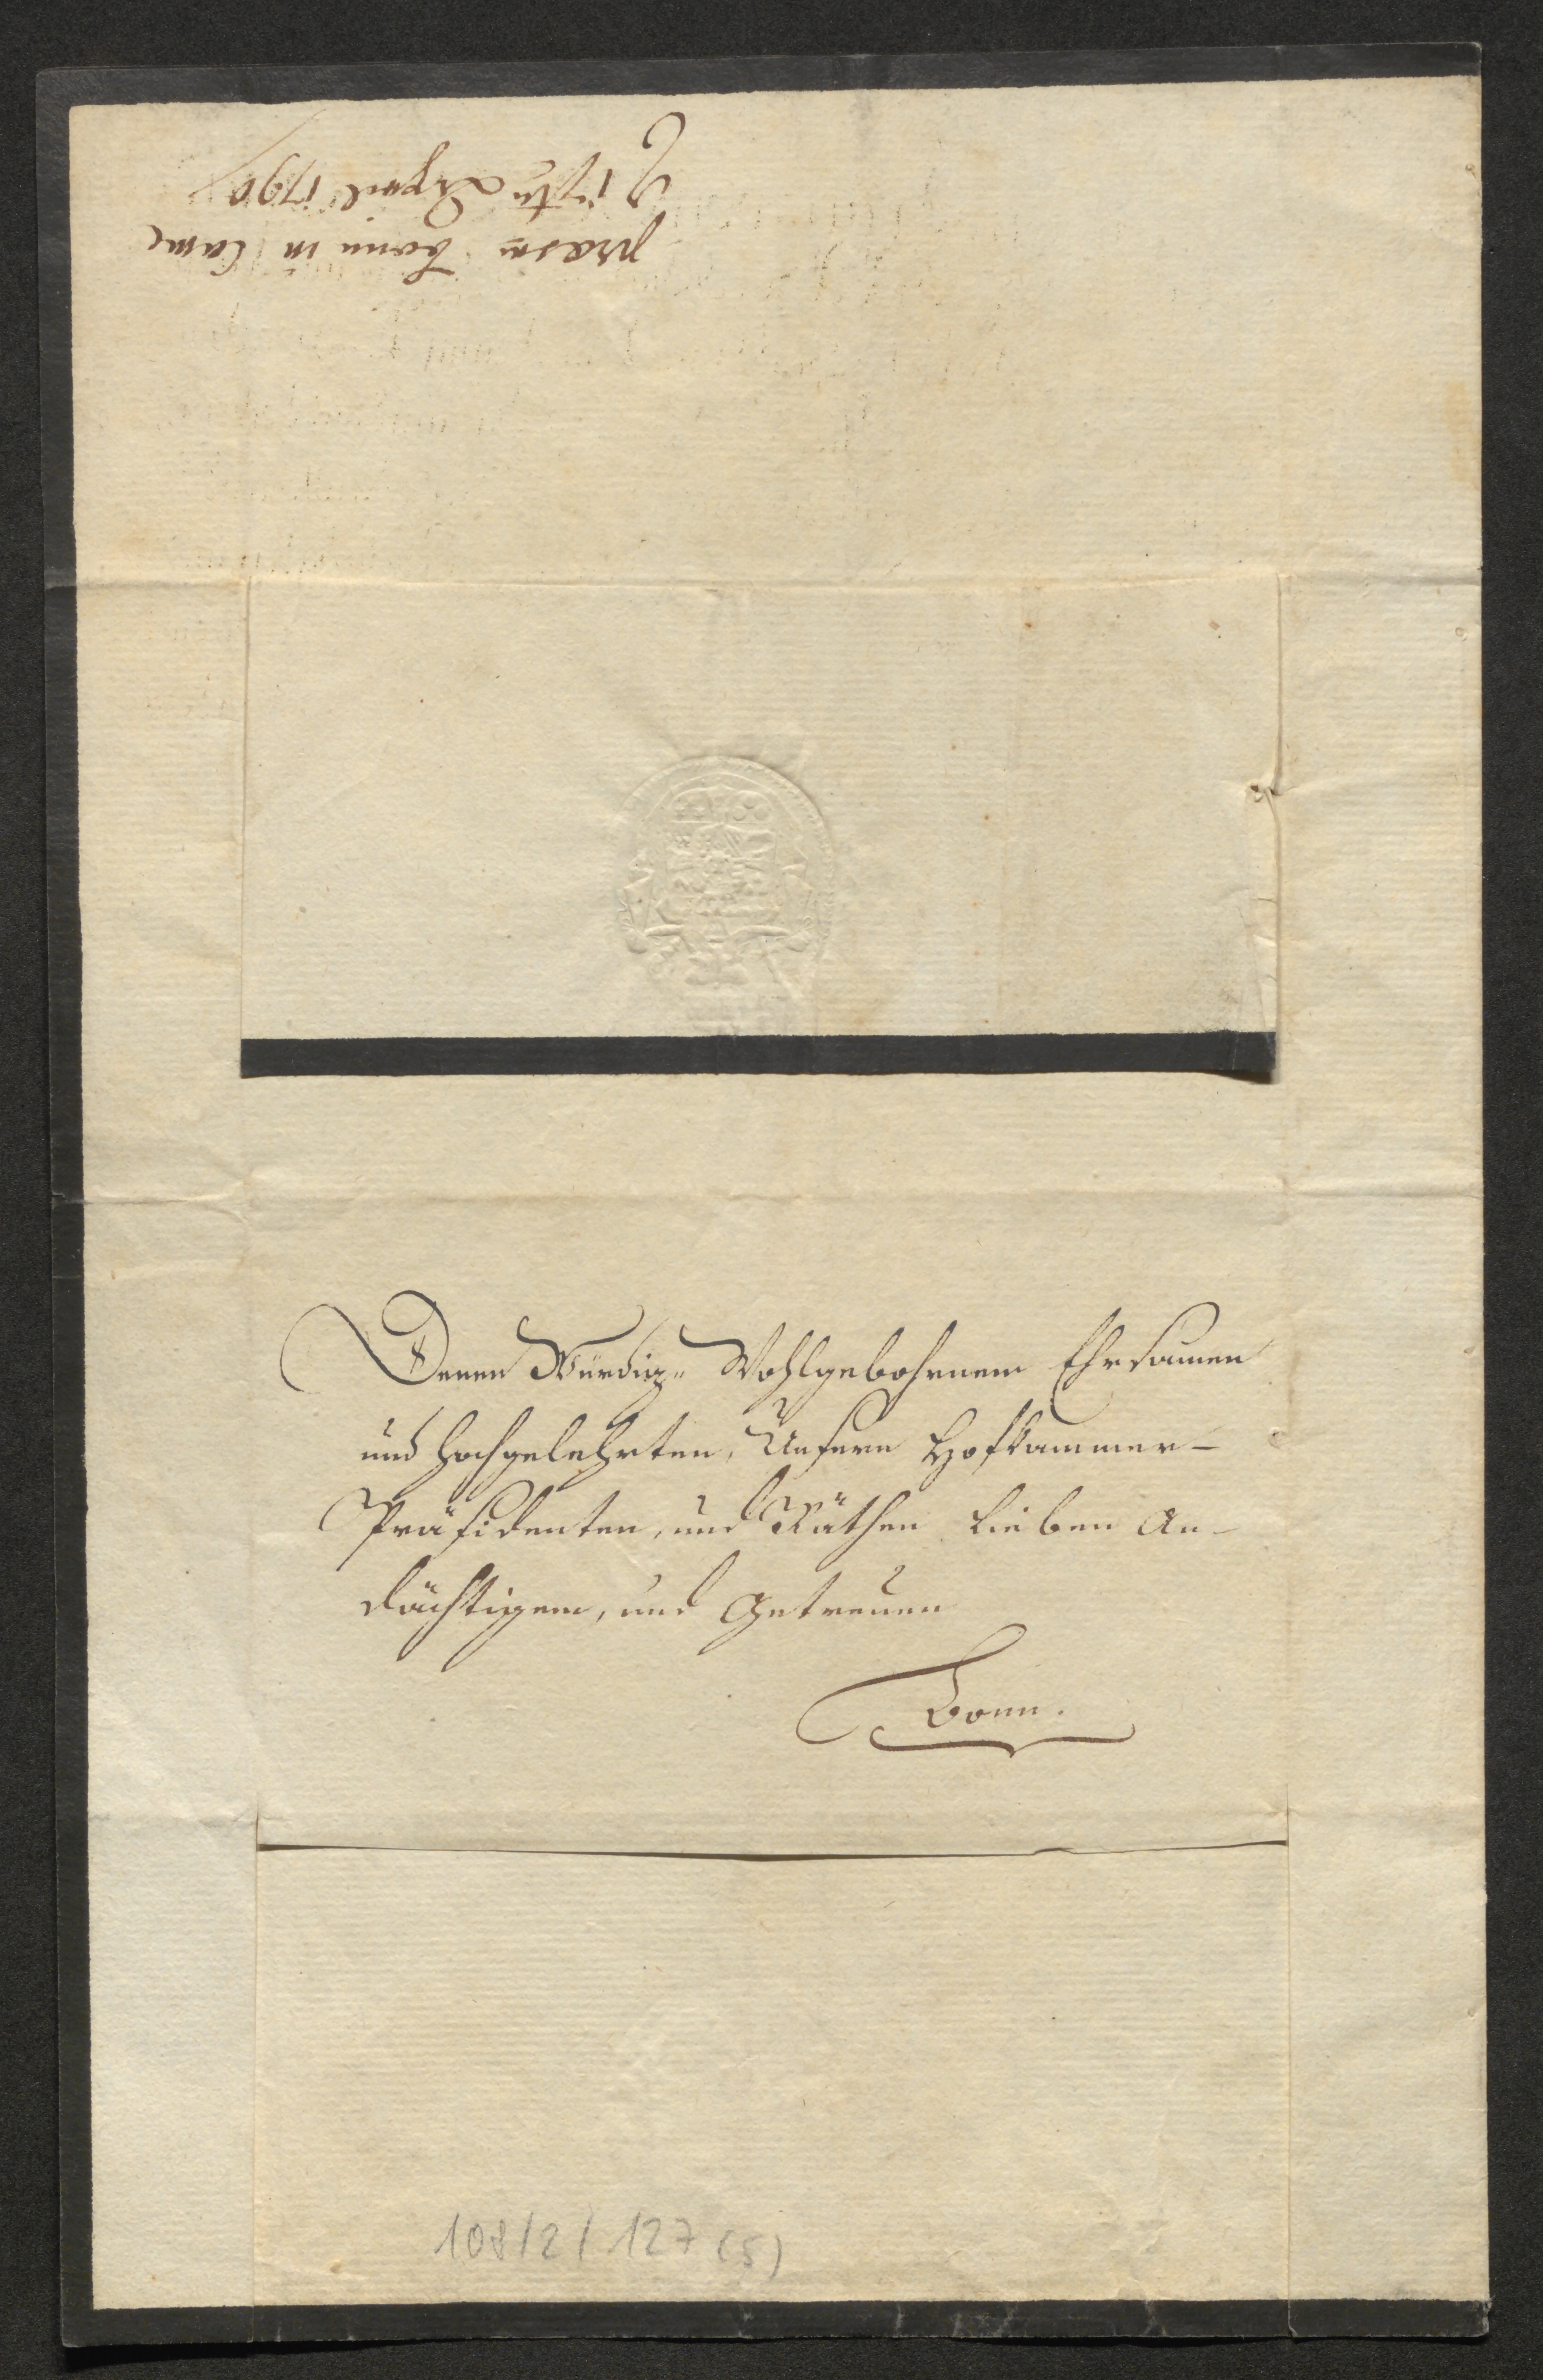 præsn Bonn in Cam̅e
d 17ten April 1790
Denen Würdig- Wohlgebohrnem Ehrsamen
und Hochgelehrten, Unsern Hofkammer-
Präsidenten, und Räthen Lieben An-
dächtigem, und Getreuen
Bonn.
108/2/127 (5)